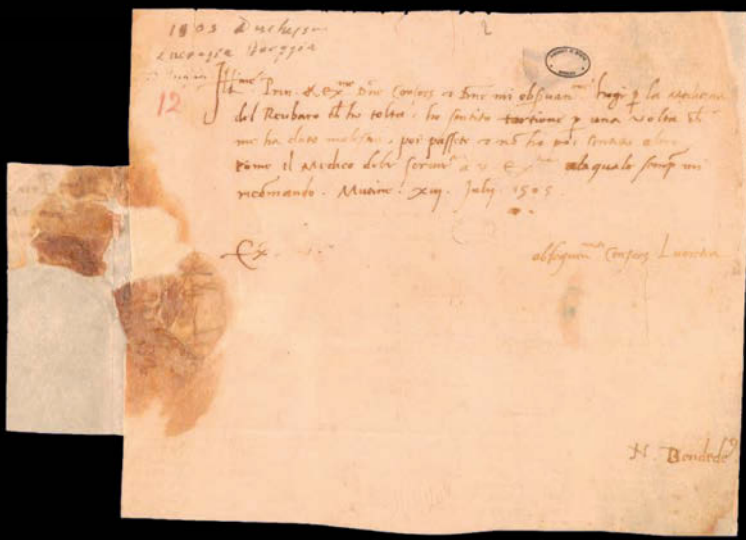 1505 Duchessa
Lucrezia Borggia
12
Ill.me Prin. & Ex.me Dne Consors & Dne mi obseruan.me hogi p la Medicina
del Reubaro ho tolta ho sentito tortione p una volta
me ha dato molestia, poi passete & nō ho poi sentito altro
come el Medico a v. Ex.tia ala quale semp mi
ricōmando. Mutine. xiij. Julij. 1505.
Ex.
obsequen.ma Consors Lucretia
N. Bendedeꝰ